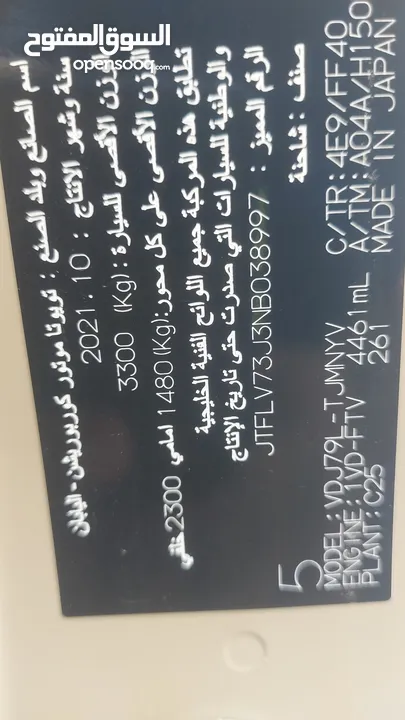 السوق المفتوح
opensooq.com
اسم الصانع وبلد الصنع : تويوتا موتور كوربوريشن - اليابان
سنة وشهر الانتاج : 2021.10
الوزن الأقصى للسيارة : 3300 (Kg)
الوزن الأقصى على كل محور:(Kg) 1480 امامي 2300 خلفي
تطابق هذه المركبة جميع اللوائح الفنية الخليجية
والوطنية للسيارات التي صدرت حتى تاريخ الإنتاج
الرقم المميز : JTFLV73J3NB038997
صنف : شاحنة
5
MODEL:VDJ79L-TJMNYV C/TR:4E9/FF40
ENGINE:1VD-FTV 4461mL A/TM:A04A/H150
PLANT:C25 261 MADE IN JAPAN